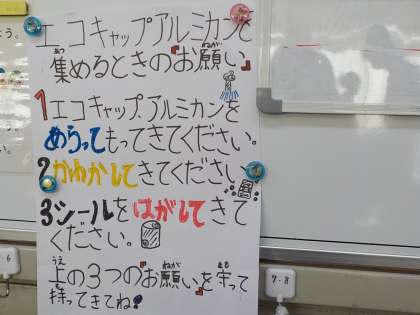 エコキャップアルミカンを
集めるときの『お願い』
1エコキャップ、アルミカンを
あらってもってきてください。
2かわかしてきてください。
3シールをはがしてきて
ください。
上の3つの『お願い』を守って
持ってきてね!
7-8